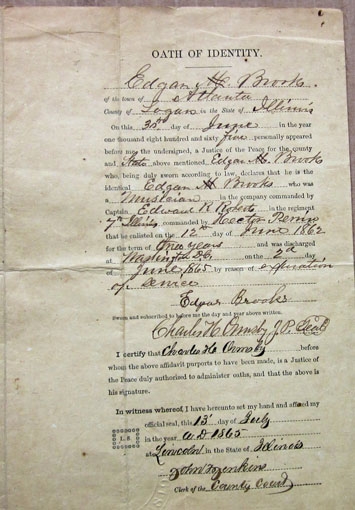 OATH OF IDENTITY.
Edgar H. Brooks.
of the town of Atlanta
County of Logan in the State of Illinois
On this 30th day of June in the year
one thousand eight hundred and sixty five personally appeared
before me the undersigned, a Justice of the Peace for the county
and State above mentioned, Edgar H. Brooks
who, being duly sworn according to law, declares that he is the
identical Edgar H Brooks who was
a Musician in the company commanded by
Captain Edward R Roberts in the regiment
7th Illinois commanded by
that he enlisted on the 12th day of June 1862
for the term of three years and was discharged
at Washington D.C. on the 2d day
of June 1865 by reason of expiration
of Service
Edgar Brooks
Sworn and subscribed to before me the day and year above written.
Charles H. Ormsby J.P. Seal
I certify that Charles H. Ormsby before
whom the above affidavit purports to have been made, is a Justice of
the Peace duly authorized to administer oaths, and that the above is
his signature.
In witness whereof, I have hereunto set my hand and affixed my
official seal, this 13 day of July
L.S. in the year A.D 1865
at Lincoln in the State of Illinois
John
Clerk of the County Court